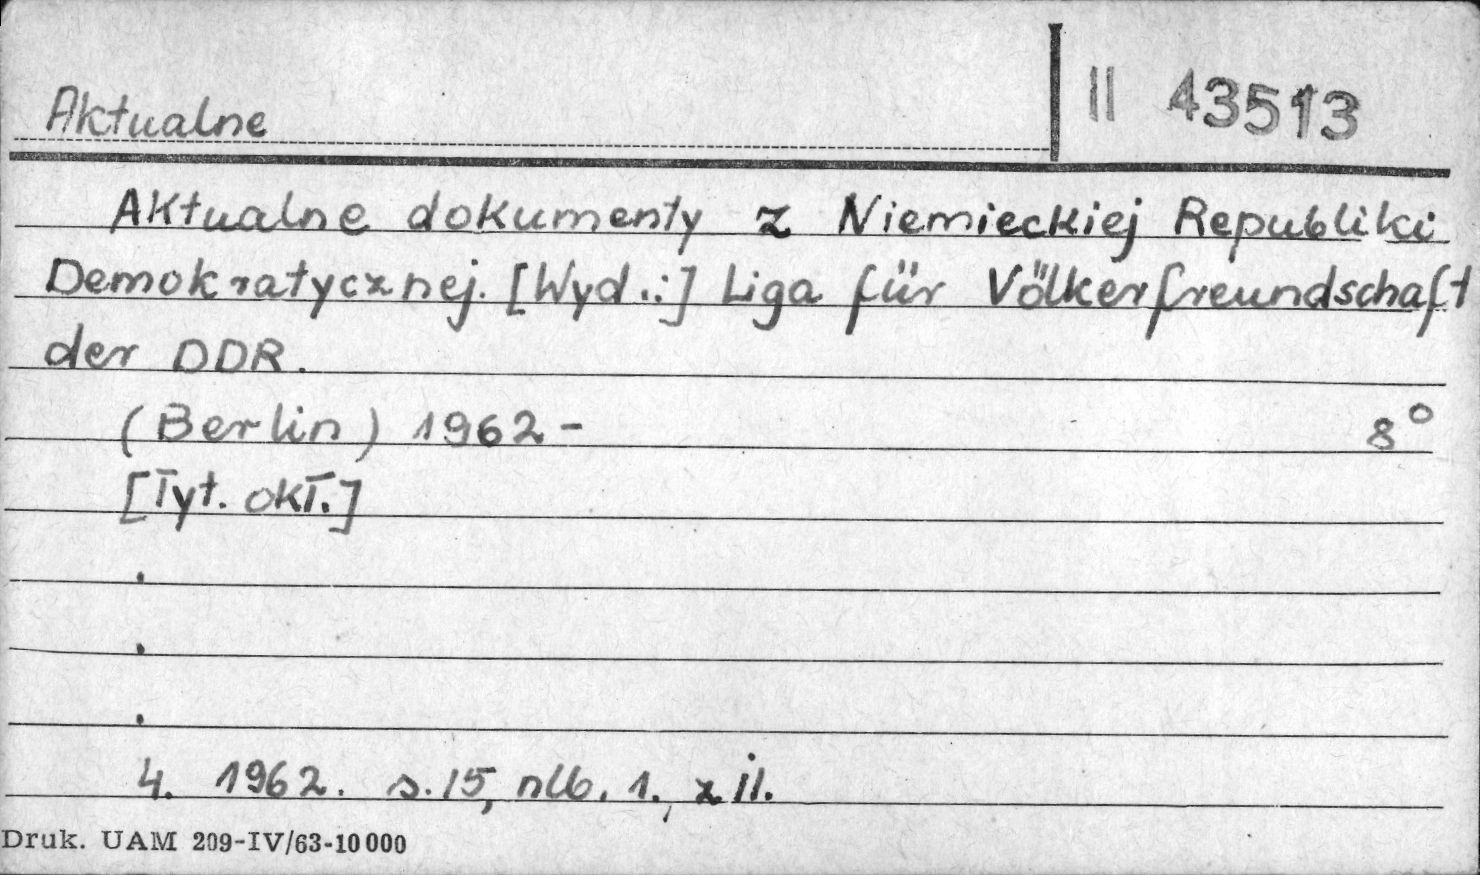 Aktualne
II 43513
Aktualne dokumenty z Niemieckiej Republiki
Demokratycznej. [Wyd.:] Liga für Völkerfreundschaft
der DDR.
(Berlin) 1962- 8°
[Tyt. okł.]
.
.
.
4. 1962. s. 15, nlb. 1., z il.
Druk. UAM 209-IV/63-10000